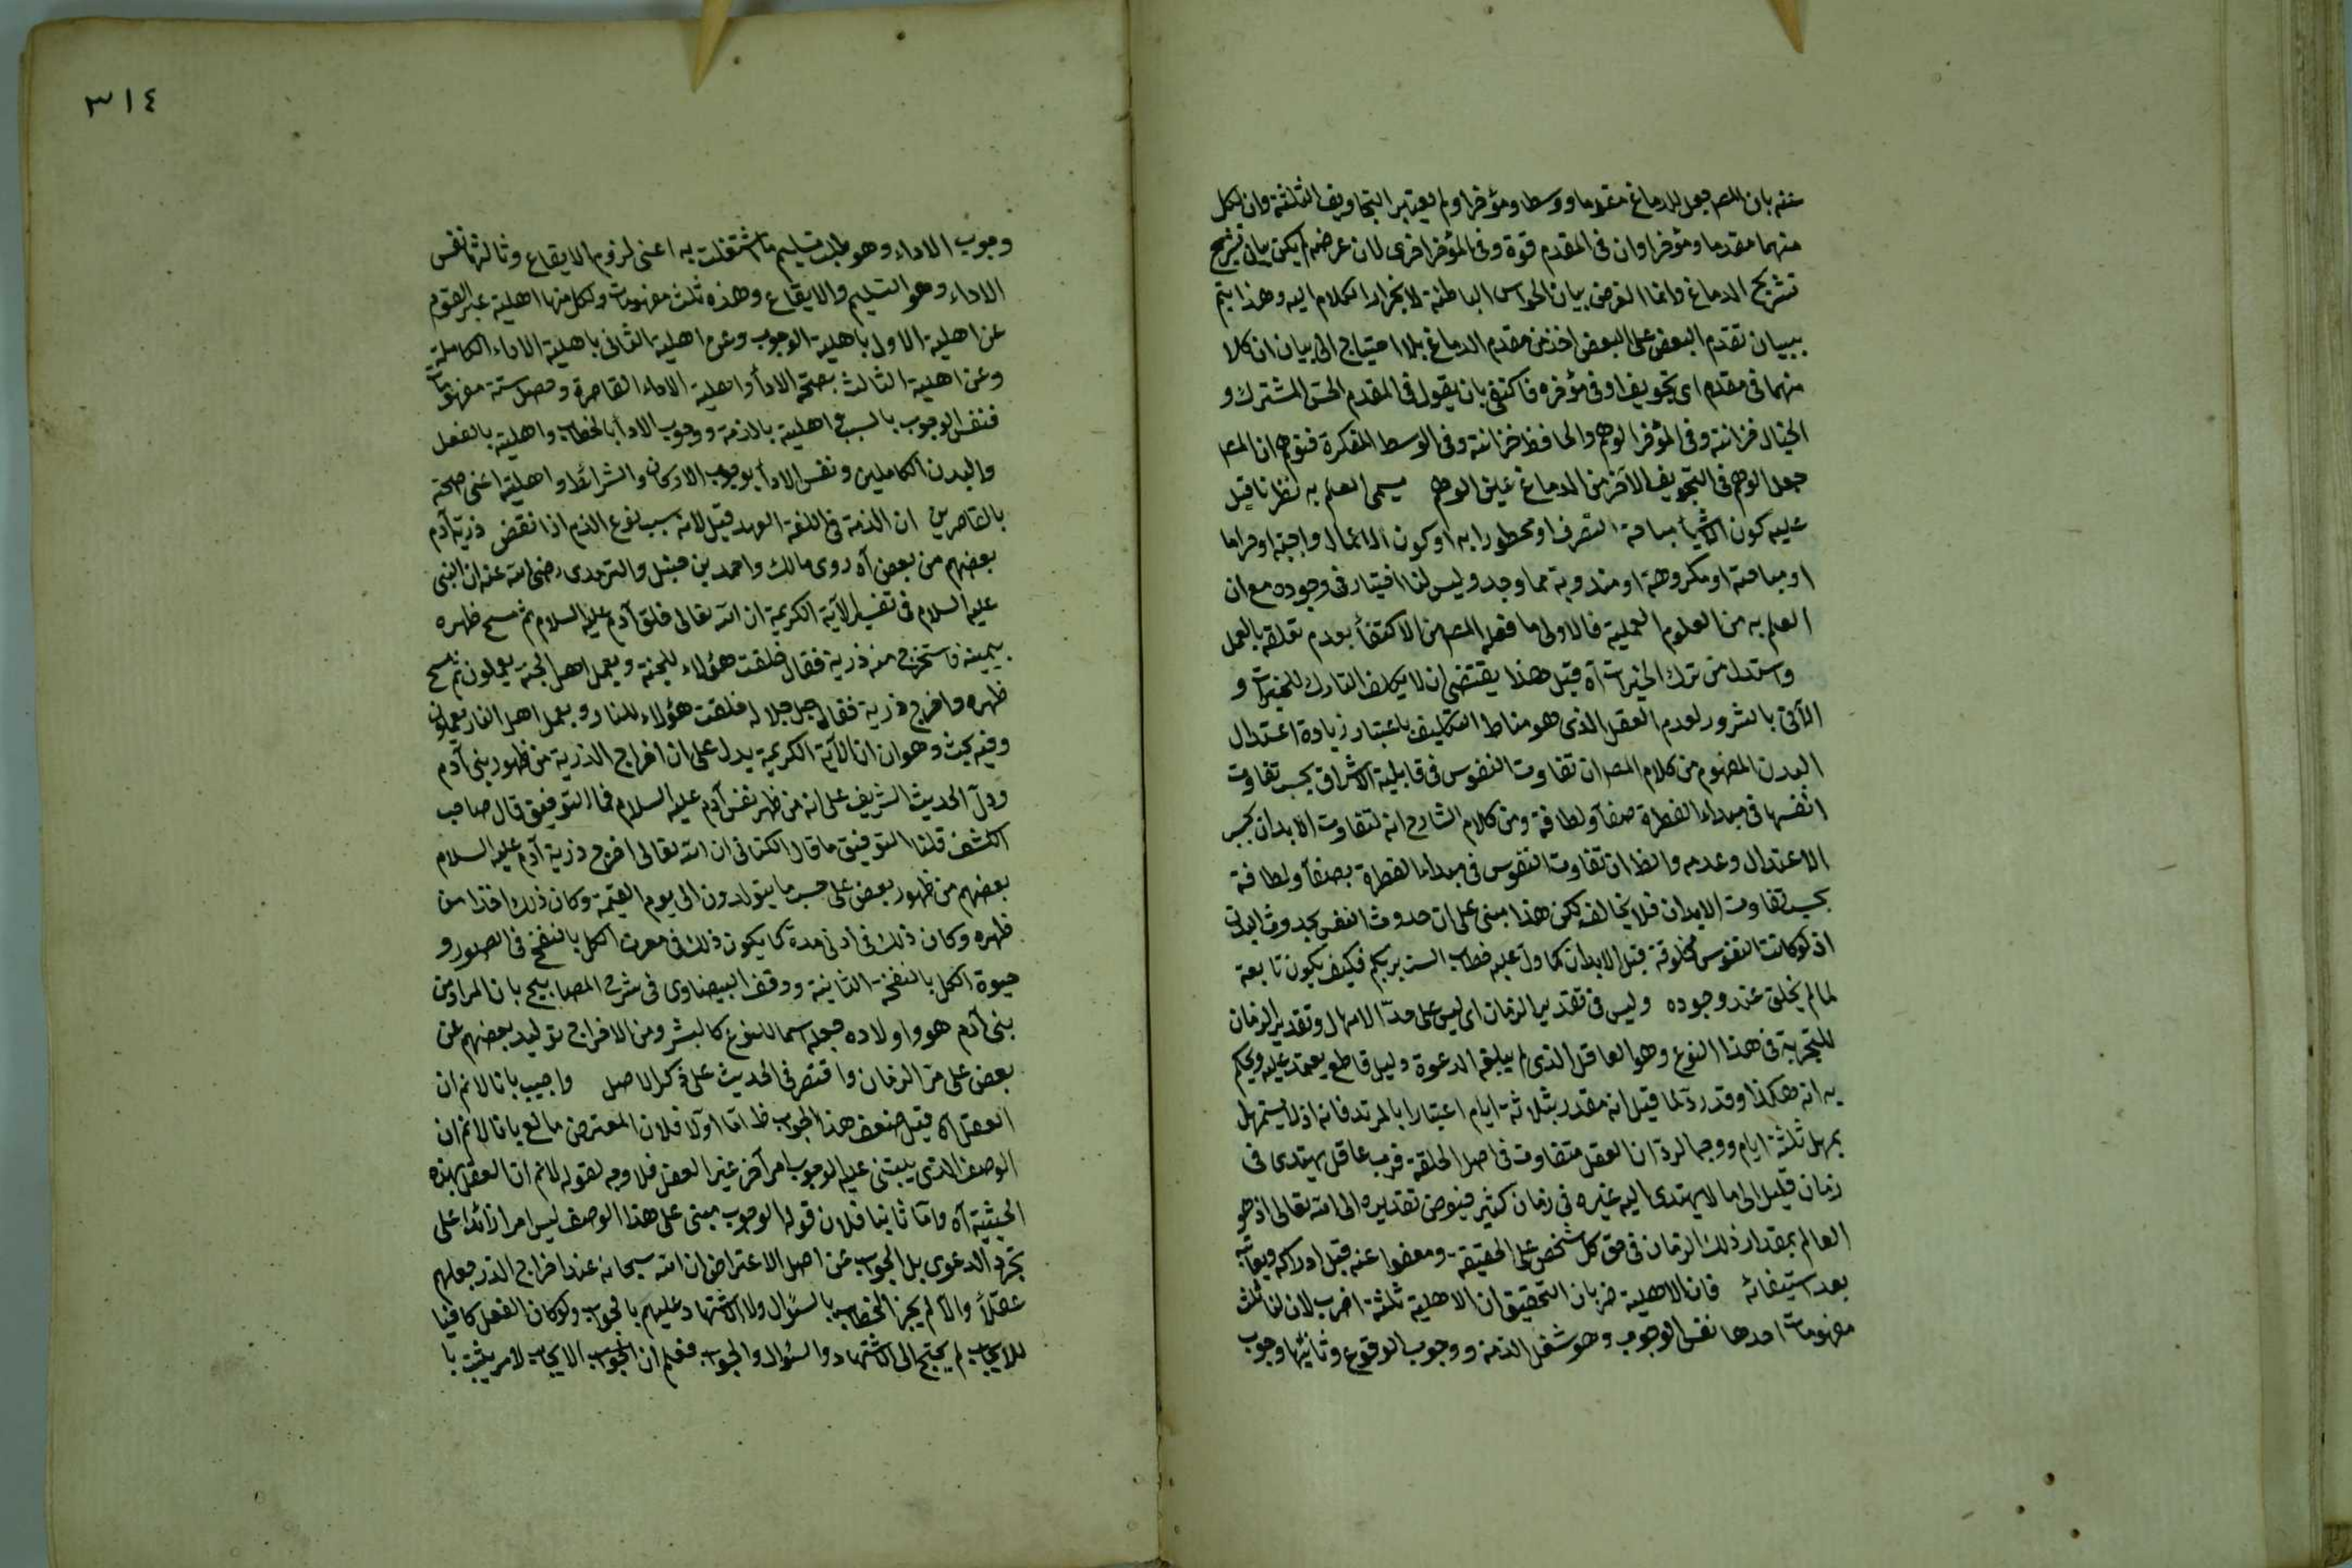 عنه بان المص جعل للدماغ مقدما ووسطا ومؤخرا ولم يعتبر التجاويف الثلثة وان لكل
منهما مقدما ومؤخرا وان فى المقدم قوة وفى المؤخر اخرى لان غرضه لم يكن بيان تشريح
تشريح الدماغ وانما الغرض بيان الحواس الباطنة لانجرار الكلام اليه وهذا يتم
ببيان تقدم البعض على البعض اخذ من مقدم الدماغ بلا احتياج الى بيان ان كلا
منهما فى مقدم اى تجويف او فى مؤخره فاكتفى بان يقول فى المقدم الحس المشترك و
الخيال خزانته وفى المؤخر الوهم والحافظ خزانته وفى الوسط المفكرة فتوهم ان المص
جعل الوهم فى التجويف الآخر من الدماغ غلبة الوهم يسمى العلم به نظريا قيل
عليه كون الاشيأ مباحة التصرف او محظورا به او كون الاعمال واجبة او حراما
او مباحة او مكروهة او مندوبة مما وجد وليس لنا اختيار فى وجوده مع ان
العلم به من العلوم العملية فالاولى ما فعله المص من الاكتفأ بعدم تعلقه بالعمل
واستدل من ترك الخيرات آه قيل هذا يقتضى ان لا يكلف التارك للخيرات و
الآتى بالشرور لعدم العقل الذى هو مناط التكليف باعتبار زيادة اعتدال
البدن المفهوم من كلام المص ان تفاوت النفوس فى قابلية الاشراق بحسب تفاوت
انفسها فى مبداء الفطرة صفأ ولطافة ومن كلام الشارح انه لتفاوت الابدان بحسب
الاعتدال وعدمه والظ ان تفاوت النفوس فى مبداء الفطرة بصفأ ولطافة
بحسب تفاوت الابدان فلا يخالف لكن هذا مبنى على ان حدوث النفس بحدوث البدن
اذ لو كانت النفوس مخلوقة قبل الابدان كما دل عليه خطاب الست بربكم فكيف يكون تابعة
لما لم يخلق عند وجوده وليس فى تقدير الزمان اى ليس على حد الامهال وتقدير الزمان
للتجربة فى هذا النوع وهو العاقل الذى لم يبلغه الدعوة دليل قاطع يعتمد عليه ويحكم
به انه هكذا وقد ردّ لما قيل انه مقدر بثلاثة ايام اعتبارا بالمرتد فانه اذ لا يستمهل
يمهل ثلثة ايام ووجه الردّ ان العقل متفاوت فى اصل الخلقة فرب عاقل يهتدى فى
زمان قليل الى ما لا يهتدى اليه غيره فى زمان كثير فيفوض تقديره الى الله تعالى اذ هو
العالم بمقدار ذلك الزمان فى حق كل شخص على الحقيقة ومعفوا عنه قبل ادراكه ويعاقب
بعد استيفائه فان الاهلية ضربان التحقيق ان الاهلية ثلثة اضرب لان لنا ثلث
مفهومات احدها نفس الوجوب وهو شغل الذمة ووجوب الوقوع وثانيها وجوب
٣١٤
وجوب الاداء وهو طلب تسليم ما اشتغلت به اعنى لزوم الايقاع وثالثها نفس
الاداء وهو التسليم والايقاع وهذه ثلث مفهومات ولكل منها اهلية عبر القوم
عن اهلية الاول باهلية الوجوب وعن اهلية الثانى باهلية الاداء الكاملة
وعن اهلية الثالث بصحة الادأ واهلية الاداء القاصرة وحصل ستة مفهومات
فنفس الوجوب بالسبب واهلية بالذمة ووجوب الادأ بالخطاب واهلية بالعقل
والبدن الكاملين ونفس الادأ بوجوب الاركان والشرائط واهلية اعنى صحته
بالقاصرين ان الذمة فى اللغة العهد قيل لانه سبب نوع الذم اذا نقض ذرية آدم
بعضهم من بعض آه روى مالك واحمد بن حنبل والترمدى رضى الله عنه ان النبى
عليه السلام فى تفسير الآية الكريمة ان الله تعالى خلق آدم عليه السلام ثم مسح ظهره
بيمينه فاستخرج منه ذرية فقال خلقت هؤلاء للجنة وبعمل اهل الجنة يعملون ثم مسح
ظهره واخرج ذرية فقال جل جلاله خلقت هؤلاء للنار وبعمل اهل النار يعملون
وفيه بحث وهو ان الآية الكريمة يدل على ان اخراج الذرية من ظهور بنى آدم
ودلّ الحديث الشريف على انه من ظهر نفس آدم عليه السلام فما التوفيق قال صاحب
الكشف قلنا التوفيق ما قال الكتانى ان الله تعالى اخرج ذرية آدم عليه السلام
بعضهم من ظهور بعض على حسب ما يتوالدون الى يوم القيمة وكان ذلك اخذا من
ظهره وكان ذلك فى ادنى مدة كما يكون ذلك فى موت الكل بالنفخ فى الصور و
حيوة الكل بالنفخة الثانية ووقف البيضاوى فى شرح المصابيح بان المراد من
بنى آدم هو واولاده فجعله اسما للنوع كالبشر ومن الاخراج توليد بعضهم عن
بعض على مر الزمان واقتصر فى الحديث على ذكر الاصل واجيب بانا لانم ان
العقل آه قيل ضعف هذا الجواب ظ اما اولا فلان المعترض مانع بانا لانم ان
الوصف الذى يبتنى عليه الوجوب امر آخر غير العقل فلا وجه لقوله لانم ان العقل بهذه
الحيثية آه واما ثانيا فلان قوله الوجوب مبنى على هذا الوصف ليس امرا زائدا على
مجرد الدعوى بل الجواب عن اصل الاعتراض ان الله سبحانه عند اخراج الذر جعلهم
عقلاً والا لم يجز الخطاب بالسؤال ولا الاشهاد عليهم بالجواب ولو كان العقل كافيا
للايجاب لم يحتج الى الاشهاد والسؤال والجواب فعلم ان الجواب الايجاب لامر يثبت با